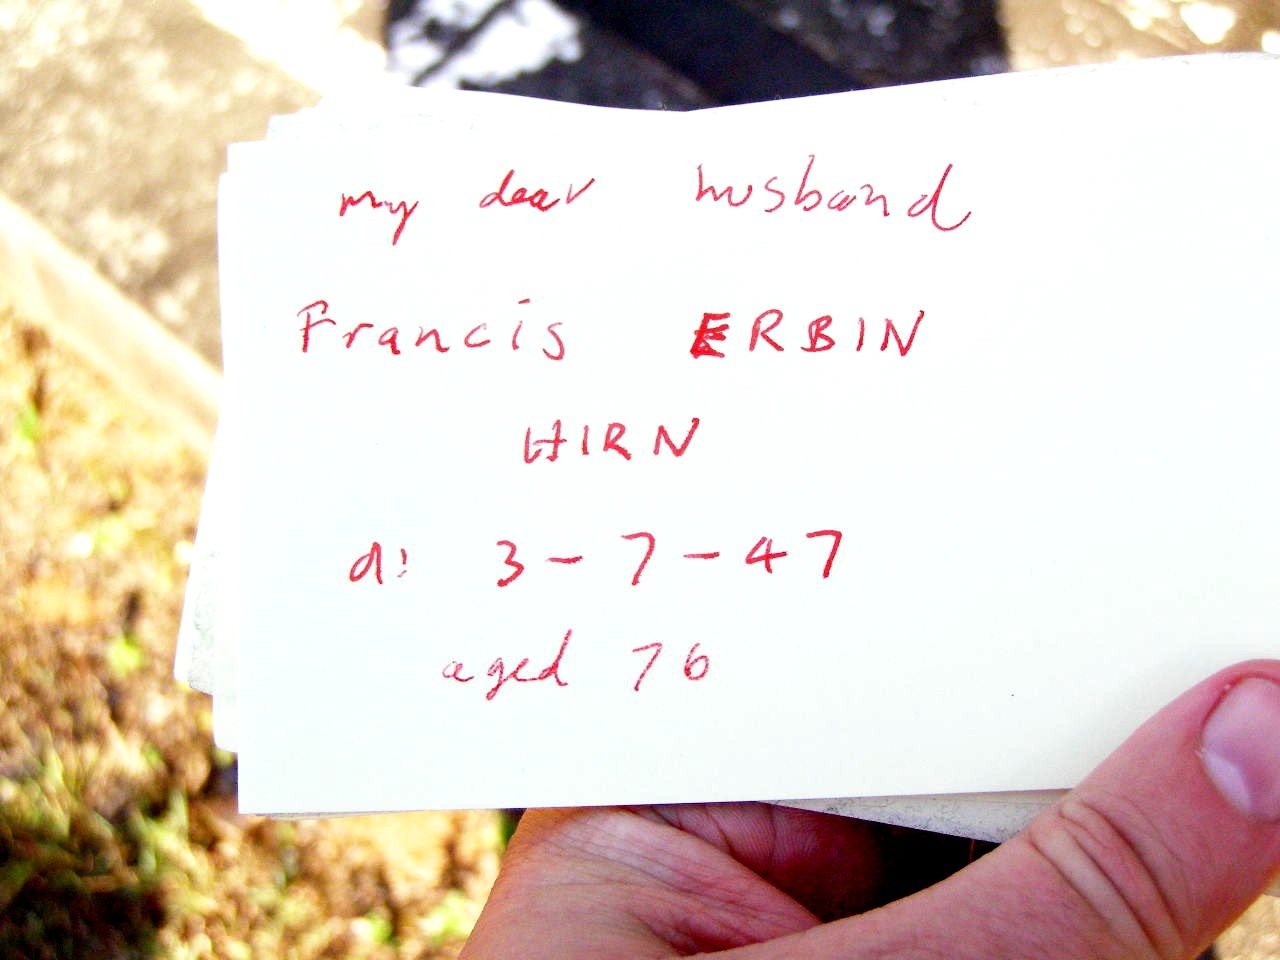 my dear husband
Francis ERBIN
HIRN
d: 3-7-47
aged 76